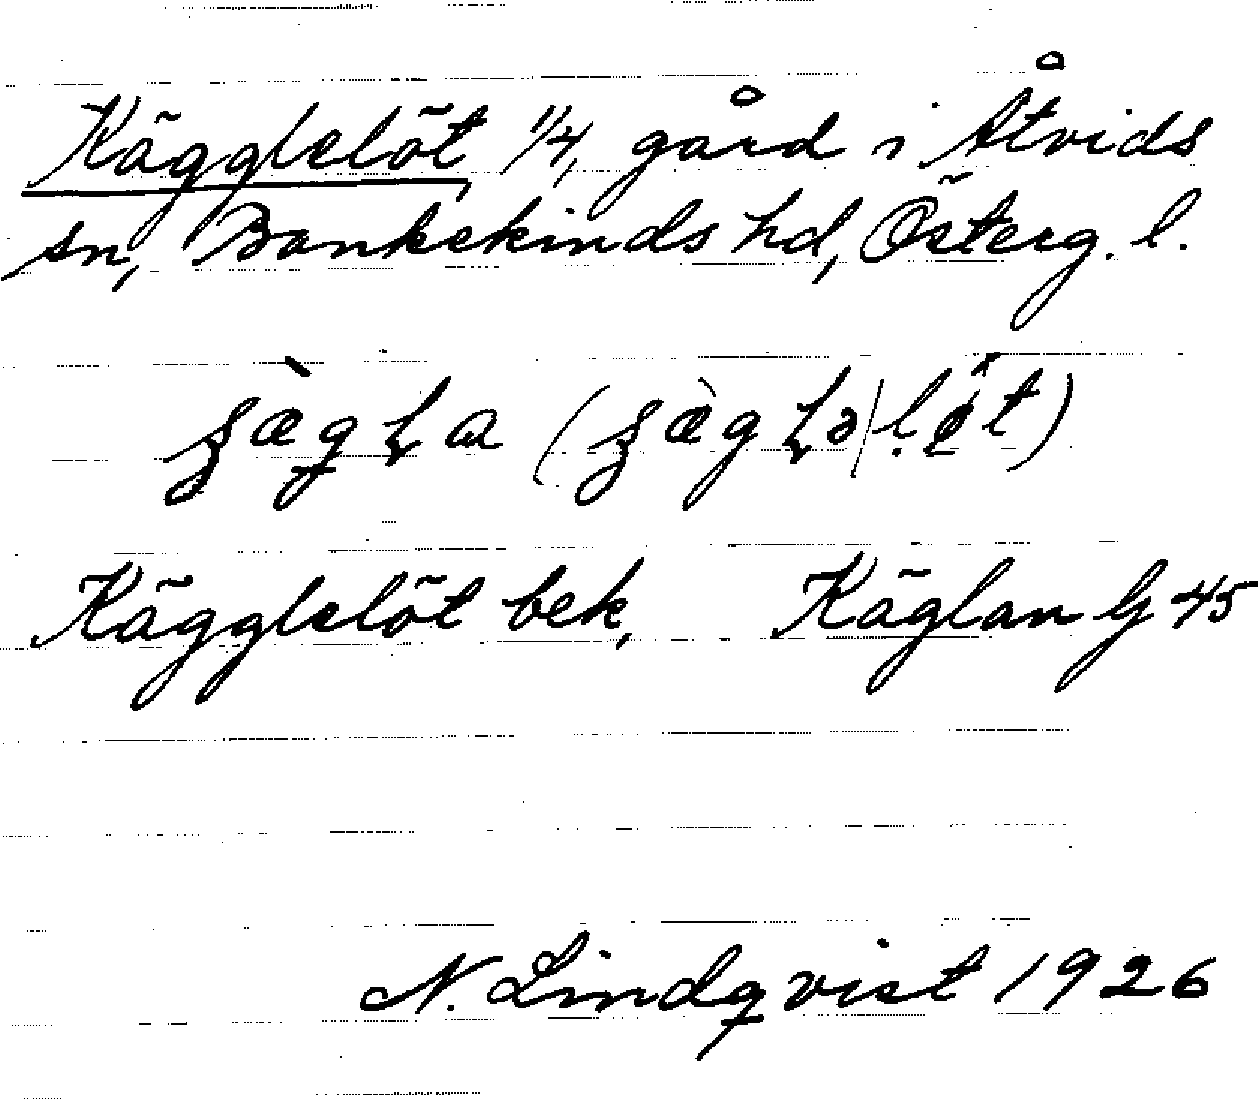 Kägglelöt 1/4, gård i Åtvids
sn, Bankekinds hd, Österg. l.
Kägglelöt bek, Käglan G 45
N. Lindqvist 1926